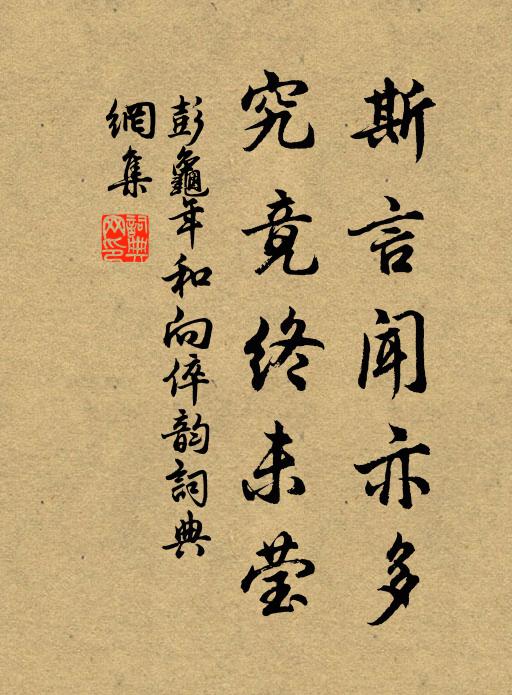 斯言闻亦多
究竟终未莹
彭龜年和向倅韵詞典
網集
詞典网印